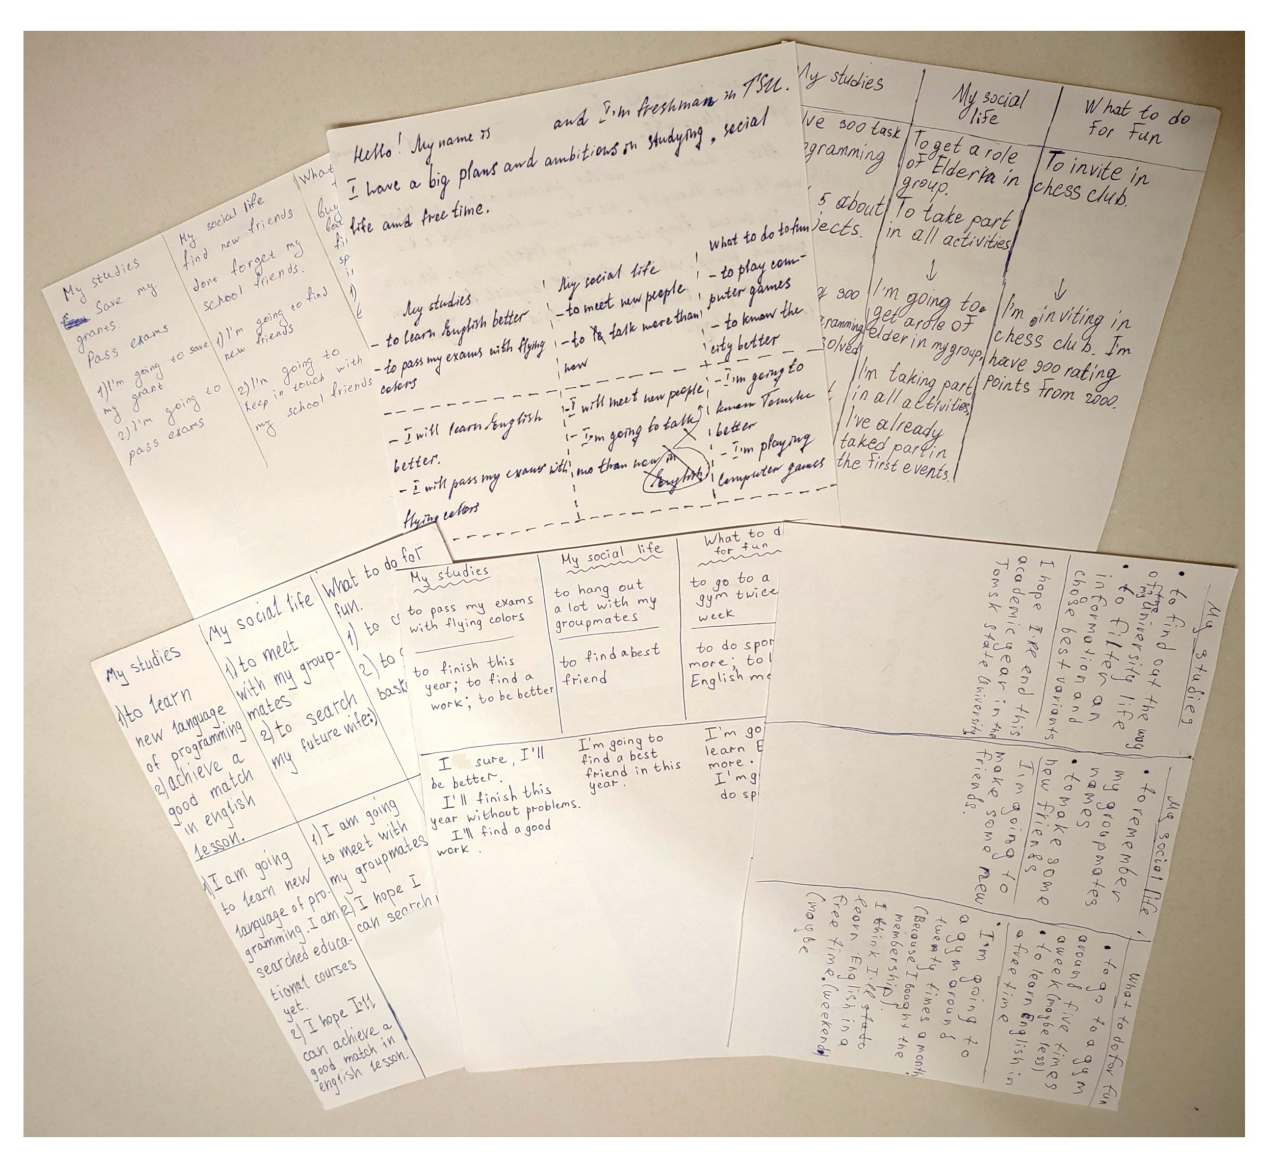 My studies
Save my
grants
Pass exams
1) I'm going to save
my grant
2) I'm going to
pass exams
My social life
find new friends
dont forget my
school friends.
1) I'm going to find
new friends
2) I'm going to
keep in touch with
my school friends
What
Hello! My name is and I'm freshman in TSU.
I have a big plans and ambitions in studying, social
life and free time.
My studies
- to learn English better
- to pass my exams with flying
colors
- I will learn English
better.
- I will pass my exams with
flying colors
My social life
- to meet new people
- to talk more than
now
- I will meet new people
- I'm going to talk
mo than now in
English
What to do to fun
- to play com-
puter games
- to know the
city better
- I'm going to
know Tomske
better
- I'm playing
computer games
My studies
ve 300 task
gramming
5 about
jects.
300
gramming
solved
My social
life
To get a role
of Elder in
group.
To take part
in all activities
↓
I'm going to
get a role of
elder in my group,
I'm taking part
in all activities
I've already
taked part in
the first events.
What to do
For Fun
To invite in
chess club.
↓
I'm inviting in
chess club. Im
have 900 rating
points from 2000.
My studies
1) to learn
new language
of programming
2) achieve a
good match
in english
lesson.
1) I am going
to learn new
language of pro-
gramming. I am
searched educa-
tional courses
yet.
2) I hope I'll
can achieve a
good match in
english lesson.
My social life
1) to meet
with my group-
mates
2) to search
my future wife:)
1) I am going
to meet with
my groupmates
2) I hope I
can search
What to do for
fun.
1) to c
2) to
bask
My studies
to pass my exams
with flying colors
to finish this
year; to find a
work; to be better
I sure, I'll
be better.
I'll finish this
year without problems.
I'll find a good
work.
My social life
to hang out
a lot with my
groupmates
to find a best
friend
I'm going to
find a best
friend in this
year.
What to d
for fun
to go to a
gym twice
week
to do spor
more; to l
English mo
I'm go
learn E
more.
I'm g
do sp
My studies
• to find out the way
of the university life
• to filter an
information and
chose best variants
I hope I'll end this
academic year in the
Tomsk State University
My social life
• to remember
my groupmates
names
• to make some
new friends
I'm going to
make some new
friends.
What to do for fun
• to go to a gym
around five times
a week (maybe less)
• to learn English in
a free time
• I'm going to
a gym around
twenty times a month
(Because I bought the
membership).
I think I'll
learn English in a
free time. (weekend)
(maybe